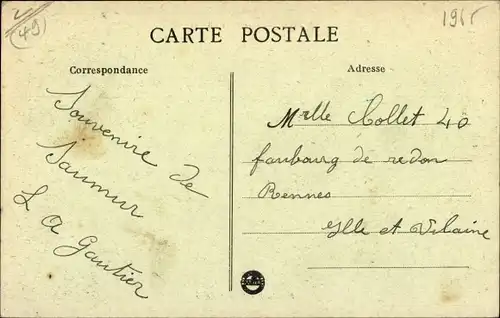 49
1915
CARTE POSTALE
Correspondance
Adresse
Souvenire de
Saumur
L A Gautier
Melle Collet 40
faubourg de redon
Rennes
Ille et Vilaine